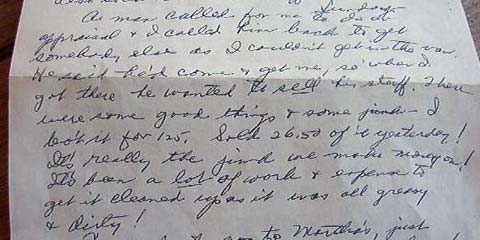 A man called for me to do an
appraisal & I called him back to get
somebody else as I couldn't get in the van.
He said he'd come & get me, so when I
got there he wanted to sell his stuff. There
were some good things & some junk - I
bo't it for 125. Sold 26.50 of it yesterday!
It's really the junk we make money on!
It's been a lot of work & expense to
get it cleaned up as it was all greasy
& dirty!
to Martha's, just